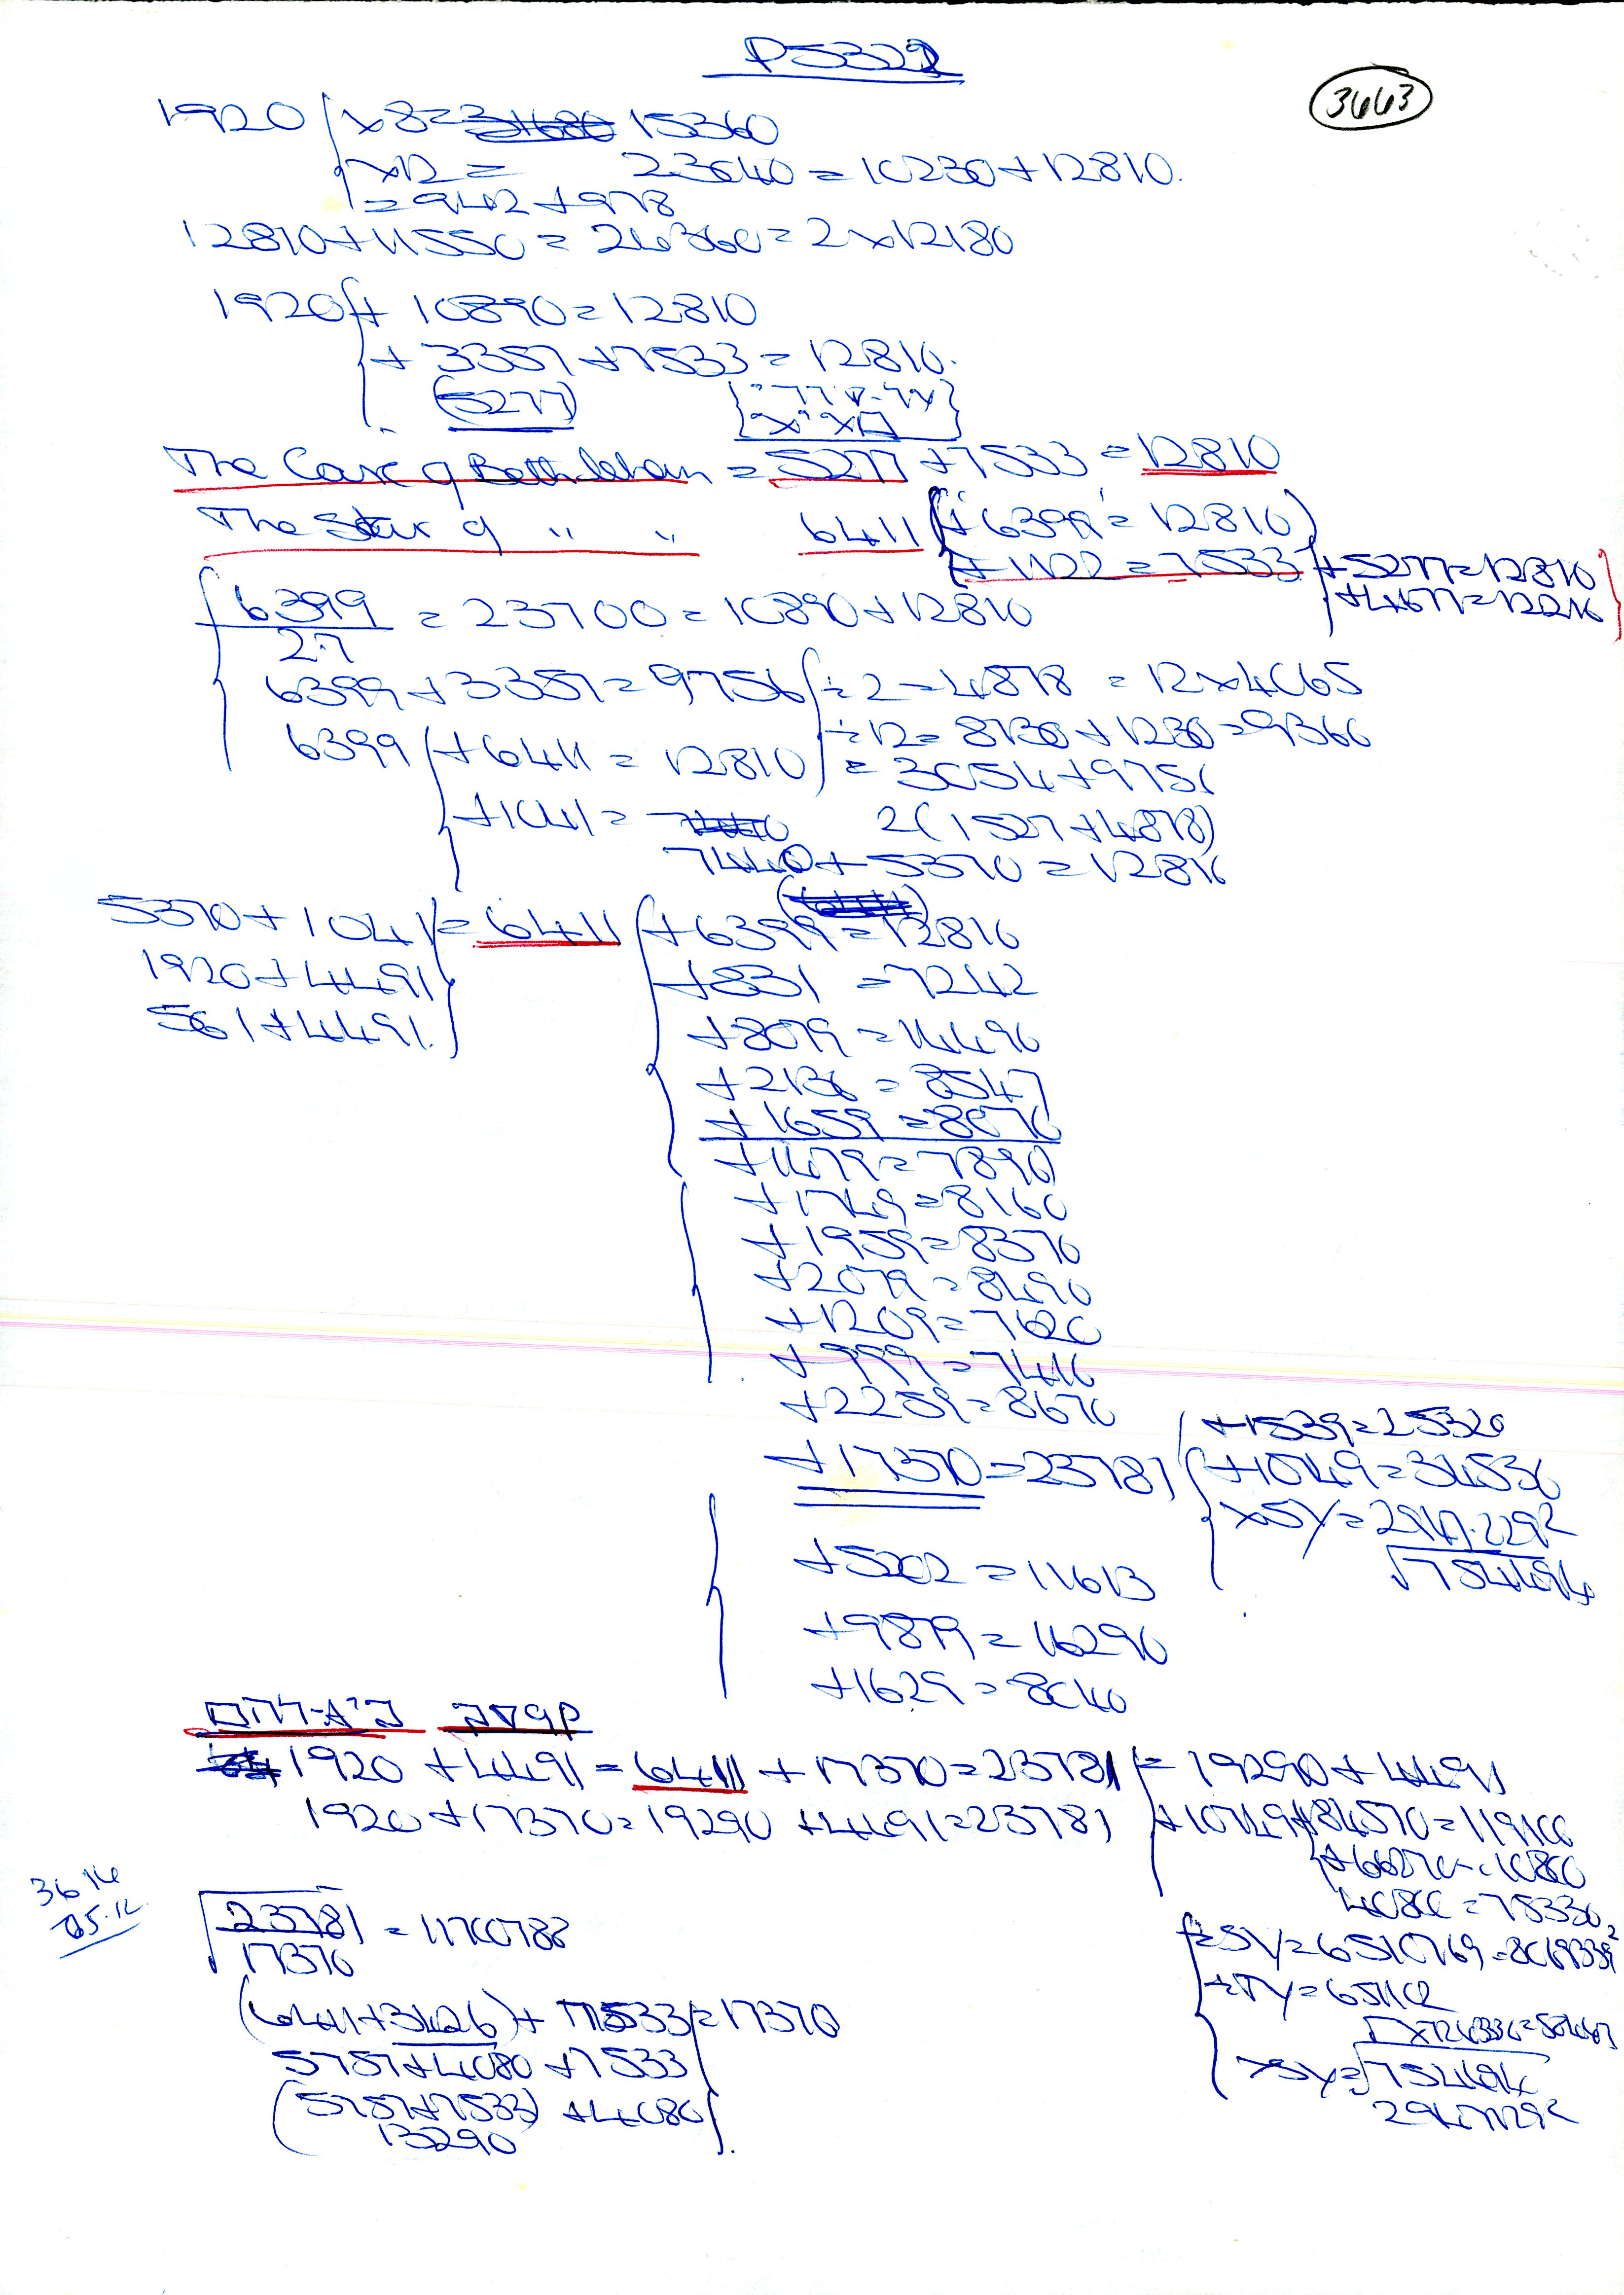 P5322
3663
1920 { x8 = 15360
x12 = 23040 = 10230 + 12810.
= 942 + 978
12810 + 11550 = 24360 = 2 x 12180
1920 { + 10890 = 12810
+ 3357 + 7533 = 12810.
(5277)
The Cave of Bethlehem = 5277 + 7533 = 12810
The Star of " " 6411 { + 6399 = 12810
+ 1122 = 7533 { + 5277 = 12810
+ 4677 = 12210
6399 / 2.7 = 23700 = 10890 + 12810
6399 + 3357 = 9756 { ÷ 2 = 4878 = 12 x 4065
÷ 12 = 8130 + 1230 = 9360
6399 { + 6411 = 12810 } = 3054 + 9756
+ 1041 = 2(1527 + 4878)
7440 + 5370 = 12810
5370 + 1041 } = 6411 { + 6399 = 12810
1920 + 4491
561 + 4491.
+ 831 = 7242
+ 8079 = 14490
+ 2136 = 8547
+ 1659 = 8070
+ 1479 = 7890
+ 1749 = 8160
+ 1959 = 8370
+ 2079 = 8490
+ 1209 = 7620
+ 999 = 7410
+ 2259 = 8670
+ 17370 = 23781 { + 1539 = 25320
+ 10749 = 34530
x5Y = 2947.229²
√754494
+ 5202 = 11613
+ 9879 = 16290
+ 1629 = 8040
1920 + 4491 = 6411 + 17370 = 23781 { = 19290 + 4491
1920 + 17370 = 19290 + 4491 = 23781
+ 10749 + 84570 = 119100
40800 = 75330
3614
05.12
√23781 / 17370 = 11700788
(6411 + 3426) + 7533 } = 17370
5757 + 4080 + 7533
(5757 + 7533) + 4080
13290
÷5Y = 6510769 = 8069339²
÷TY = 651102
x5Y = √754494